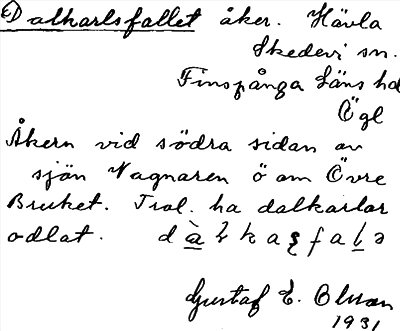 Dalkarlsfallet åker. Hävla
Skedevi sn.
Finspånga Läns hd
Ögl
Åkern vid södra sidan av
sjön Vagnaren ö om Övre
Bruket. Trol. ha dalkarlar
odlat.
Gustaf E. Olsson
1931